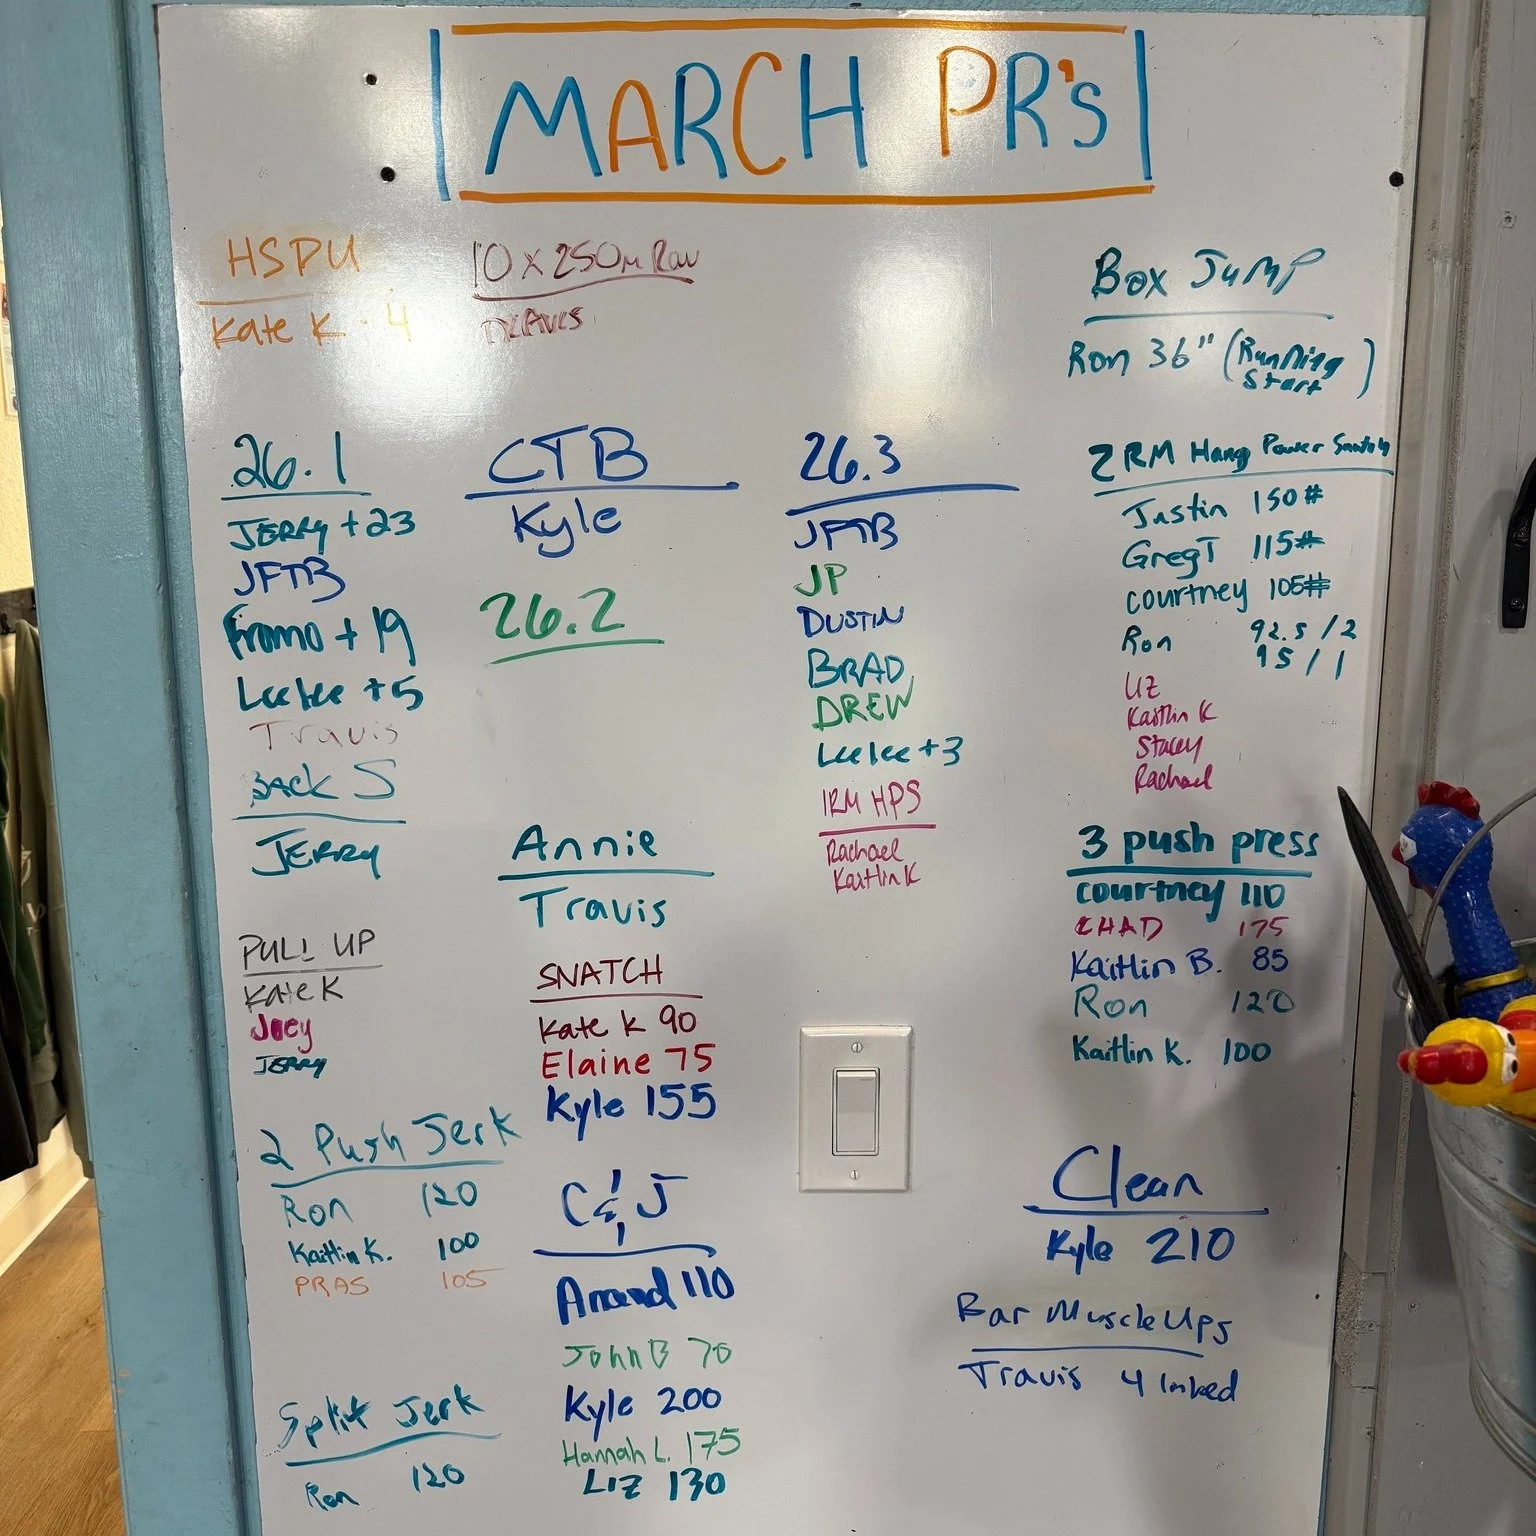 MARCH PR's
HSPU
Kate K - 4
10 x 250m Row
Box Jump
Ron 36" (Running Start)
26.1
JERRY +23
JFTB
Fromo + 19
Leelee +5
Travis
BACK S
JERRY
CTB
Kyle
26.2
26.3
JFTB
JP
DUSTIN
BRAD
DREW
Leelee +3
1RM HPS
Rachael
Kaitlin K
2RM Hang Power Snatch
Justin 150#
Greg T 115#
Courtney 105#
Ron 92.5 / 2
95 / 1
Liz
Kaitlin K
Stacey
Rachael
Annie
Travis
3 push press
Courtney 110
CHAD 175
Kaitlin B. 85
Ron 120
Kaitlin K. 100
PULL UP
Kate K
Joey
JERRY
SNATCH
Kate K 90
Elaine 75
Kyle 155
2 Push Jerk
Ron 120
Kaitlin K. 100
PRAS 105
C & J
Anand 110
John B 70
Kyle 200
Hannah L. 175
LIZ 130
Clean
Kyle 210
Bar Muscle Ups
Travis 4 linked
Split Jerk
Ron 120